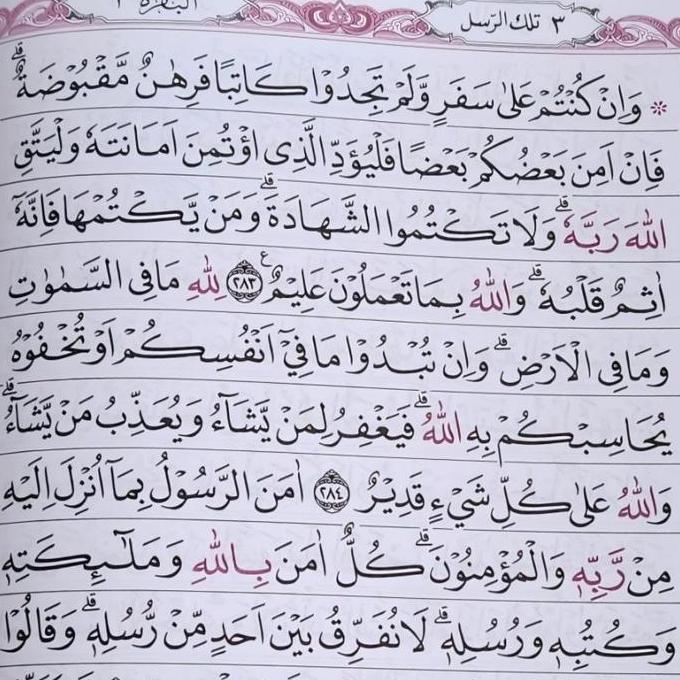 ٣ تلك الرسل البقرة
* وَاِنْ كُنْتُمْ عَلٰى سَفَرٍ وَّلَمْ تَجِدُوْا كَاتِبًا فَرِهٰنٌ مَّقْبُوْضَةٌ ۗ
فَاِنْ اَمِنَ بَعْضُكُمْ بَعْضًا فَلْيُؤَدِّ الَّذِى اؤْتُمِنَ اَمَانَتَهٗ وَلْيَتَّقِ
اللّٰهَ رَبَّهٗ ۗ وَلَا تَكْتُمُوا الشَّهَادَةَ ۗ وَمَنْ يَّكْتُمْهَا فَاِنَّهٗٓ
اٰثِمٌ قَلْبُهٗ ۗ وَاللّٰهُ بِمَا تَعْمَلُوْنَ عَلِيْمٌ ࣖ ٢٨٣ لِلّٰهِ مَا فِى السَّمٰوٰتِ
وَمَا فِى الْاَرْضِ ۗ وَاِنْ تُبْدُوْا مَا فِيْٓ اَنْفُسِكُمْ اَوْ تُخْفُوْهُ
يُحَاسِبْكُمْ بِهِ اللّٰهُ ۗ فَيَغْفِرُ لِمَنْ يَّشَاۤءُ وَيُعَذِّبُ مَنْ يَّشَاۤءُ ۗ
وَاللّٰهُ عَلٰى كُلِّ شَيْءٍ قَدِيْرٌ ٢٨٤ اٰمَنَ الرَّسُوْلُ بِمَآ اُنْزِلَ اِلَيْهِ
مِنْ رَّبِّهٖ وَالْمُؤْمِنُوْنَ ۗ كُلٌّ اٰمَنَ بِاللّٰهِ وَمَلٰۤىِٕكَتِهٖ
وَكُتُبِهٖ وَرُسُلِهٖ ۗ لَا نُفَرِّقُ بَيْنَ اَحَدٍ مِّنْ رُّسُلِهٖ ۗ وَقَالُوْا